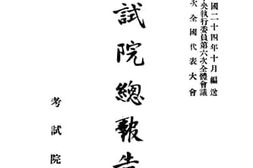 國二十四年十月編送
央執行委員第六次全體會議
次全國代表大會
試院總報告
考試院